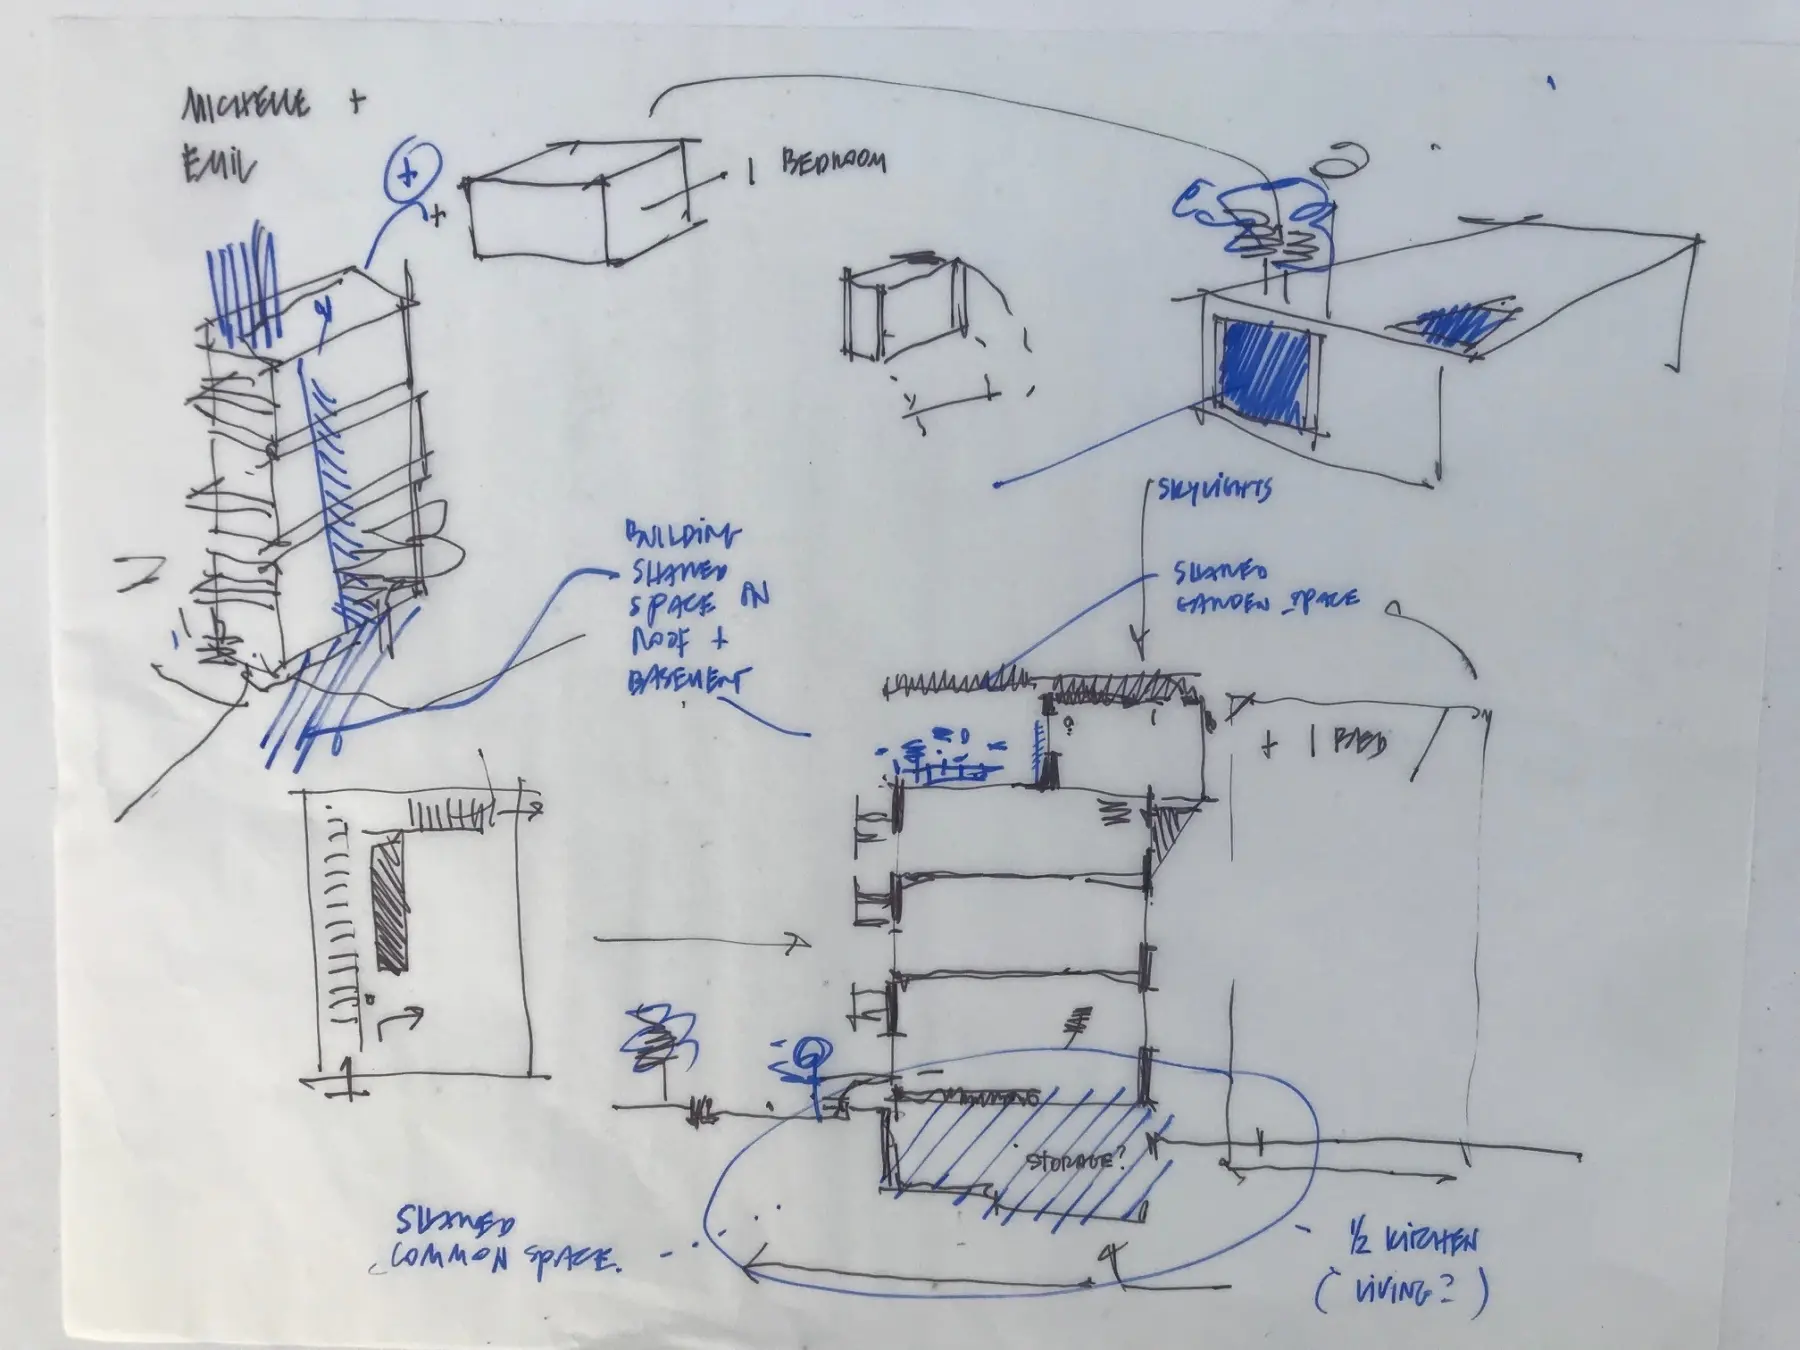 MICHELLE +
EMIL
+
+
1 BEDROOM
SKYLIGHTS
BUILDING
SHARED
SPACE IN
ROOF +
BASEMENT
SHARED
GARDEN SPACE
+ 1 BED
STORAGE?
SHARED
COMMON SPACE.
1/2 KITCHEN
(LIVING?)